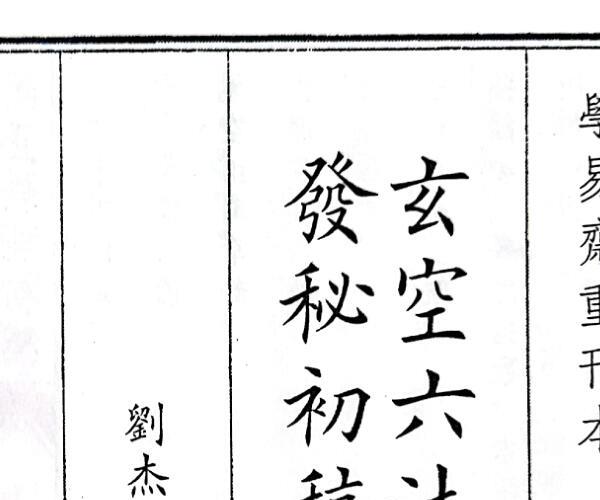 學易齋重刊本
玄空六法
發秘初稿
劉杰